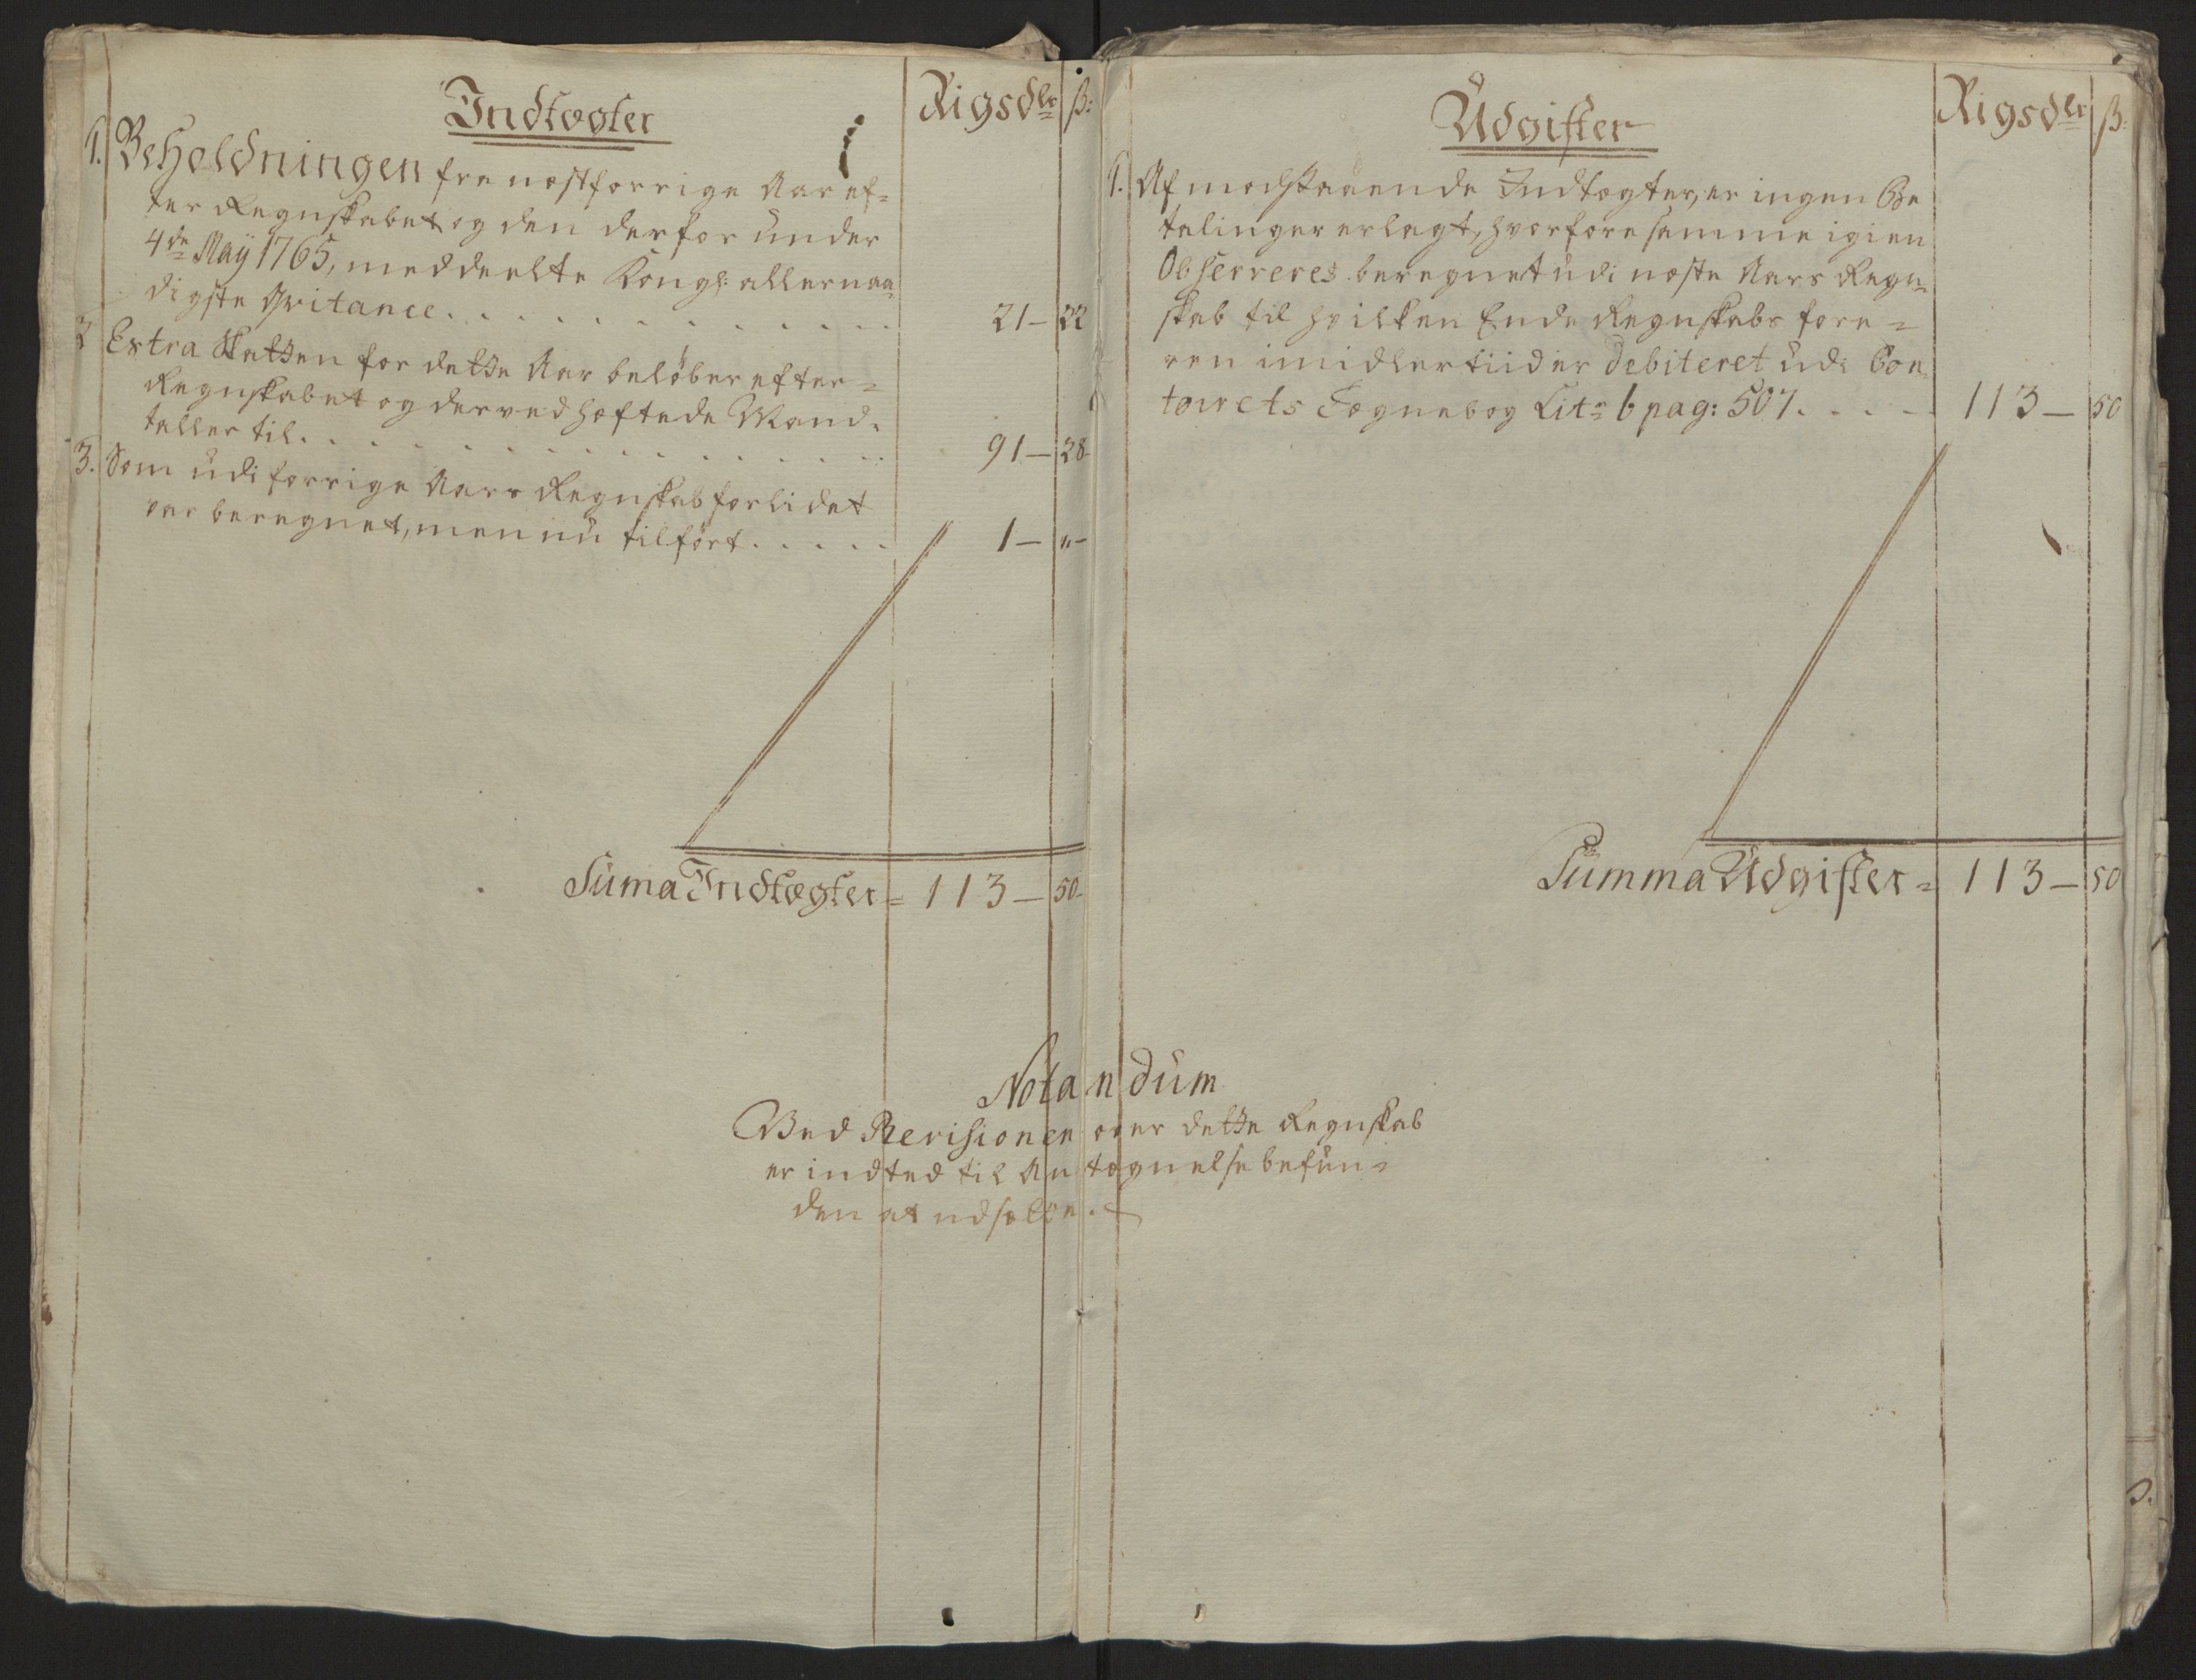 Indtægter
Rigsdlr ß:
1. Beholdningen fra næstforrige Aar ef=
ter Regnskabet og den derfor under
4de Maÿ 1765, meddeelte Kongl: allernaa=
digste Qvitance. . . . . . . . . . . . 21 — 22
2 Extra Skatten for dette Aar beløber efter =
Regnskabet og derved hæftede Mand=
taller til. . . . . . . . . . . . . . . 91 — 28
3. Som udi forrige Aars Regnskab for lidet
var beregnet, men nu tilført. . . . . 1 — "—
Suma Indtægter = 113 — 50
Udgifter
Rigsdlr ß:
1. Af modstaaende Indtægter, er ingen Be
talinger erlagt, hvorfore samme igien
Observeres beregnet udi næste Aars Regn=
skab til hvilken Ende Regnskabs føre=
ren imidlertiid er Debiteret udi Con
toirets Tegnebog Litr b pag: 507. . . . 113 — 50
Summa Udgifter = 113 — 50
Notandum
Ved Revisionen over dette Regnskab
er indted til Antegnelse befun=
den at udsætte.